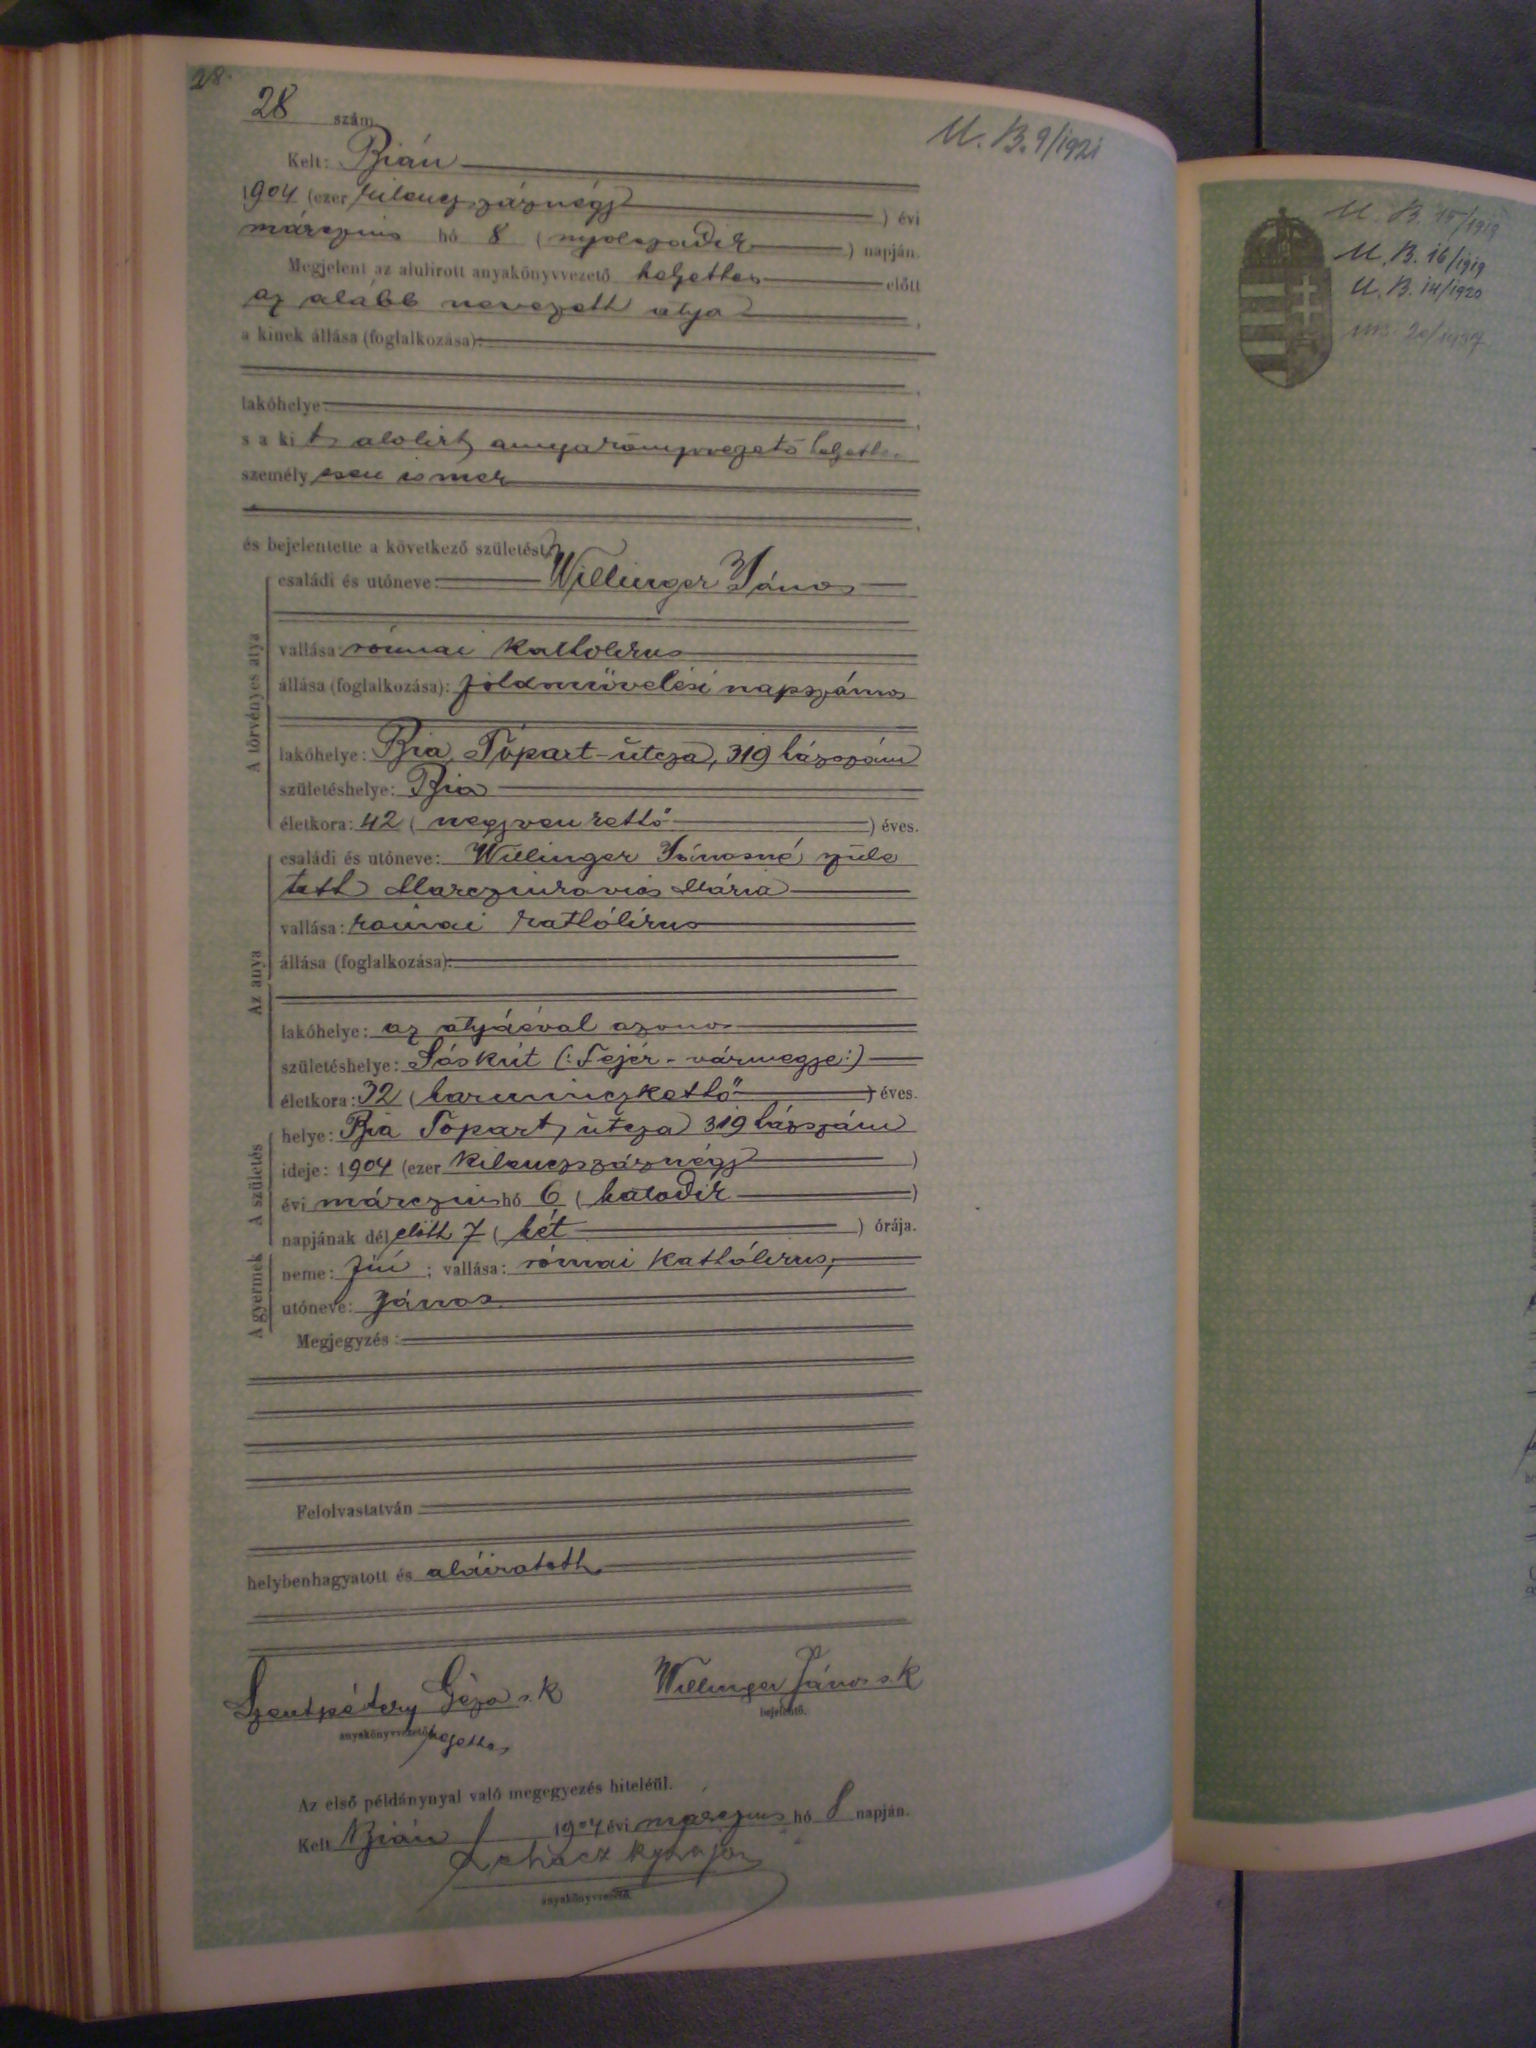 28
28 szám
M. B. 9/1921
Kelt: Bián
1904 (ezer kilenczszáznégy) évi
márczius hó 8 (nyolczadik) napján.
Megjelent az alulirott anyakönyvvezető helyettes előtt
az alább nevezett atya,
a kinek állása (foglalkozása):
lakóhelye
s a kit alolirt anyakönyvvezető helyettes
személyesen ismer
és bejelentette a következő születést:
A törvényes atya
családi és utóneve: Willinger János
vallása: római katholikus
állása (foglalkozása): földmüvelési napszámos
lakóhelye: Bia, Tópart-utcza, 319 házszám
születéshelye: Bia
életkora: 42 (negyvenkettő) éves.
Az anya
családi és utóneve: Willinger Jánosné, szüle
tett Marczinkovics Mária
vallása: római kathólikus
állása (foglalkozása):
lakóhelye: az atyáéval azonos
születéshelye: Sóskút (: Fejér-vármegye :)
életkora: 32 (harminczkettő) éves.
A születés
helye: Bia Tópart, utcza 319 házszám
ideje: 1904 (ezer kilenczszáznégy)
évi márczius hó 6 (hatodik)
napjának dél előtt 7 (hét) órája.
A gyermek
neme: fiú; vallása: római kathólikus,
utóneve: János
Megjegyzés:
Felolvastatván
helybenhagyatott és aláiratott.
Szentpétery Géza s. k. Willinger János s. k.
anyakönyvvezető helyettes bejelentő.
Az első példánynyal való megegyezés hiteléül.
Kelt Bián 1904 évi márczius hó 8 napján.
anyakönyvvezető
M. B. 15/1919
M. B. 16/1919
M. B. 14/1920